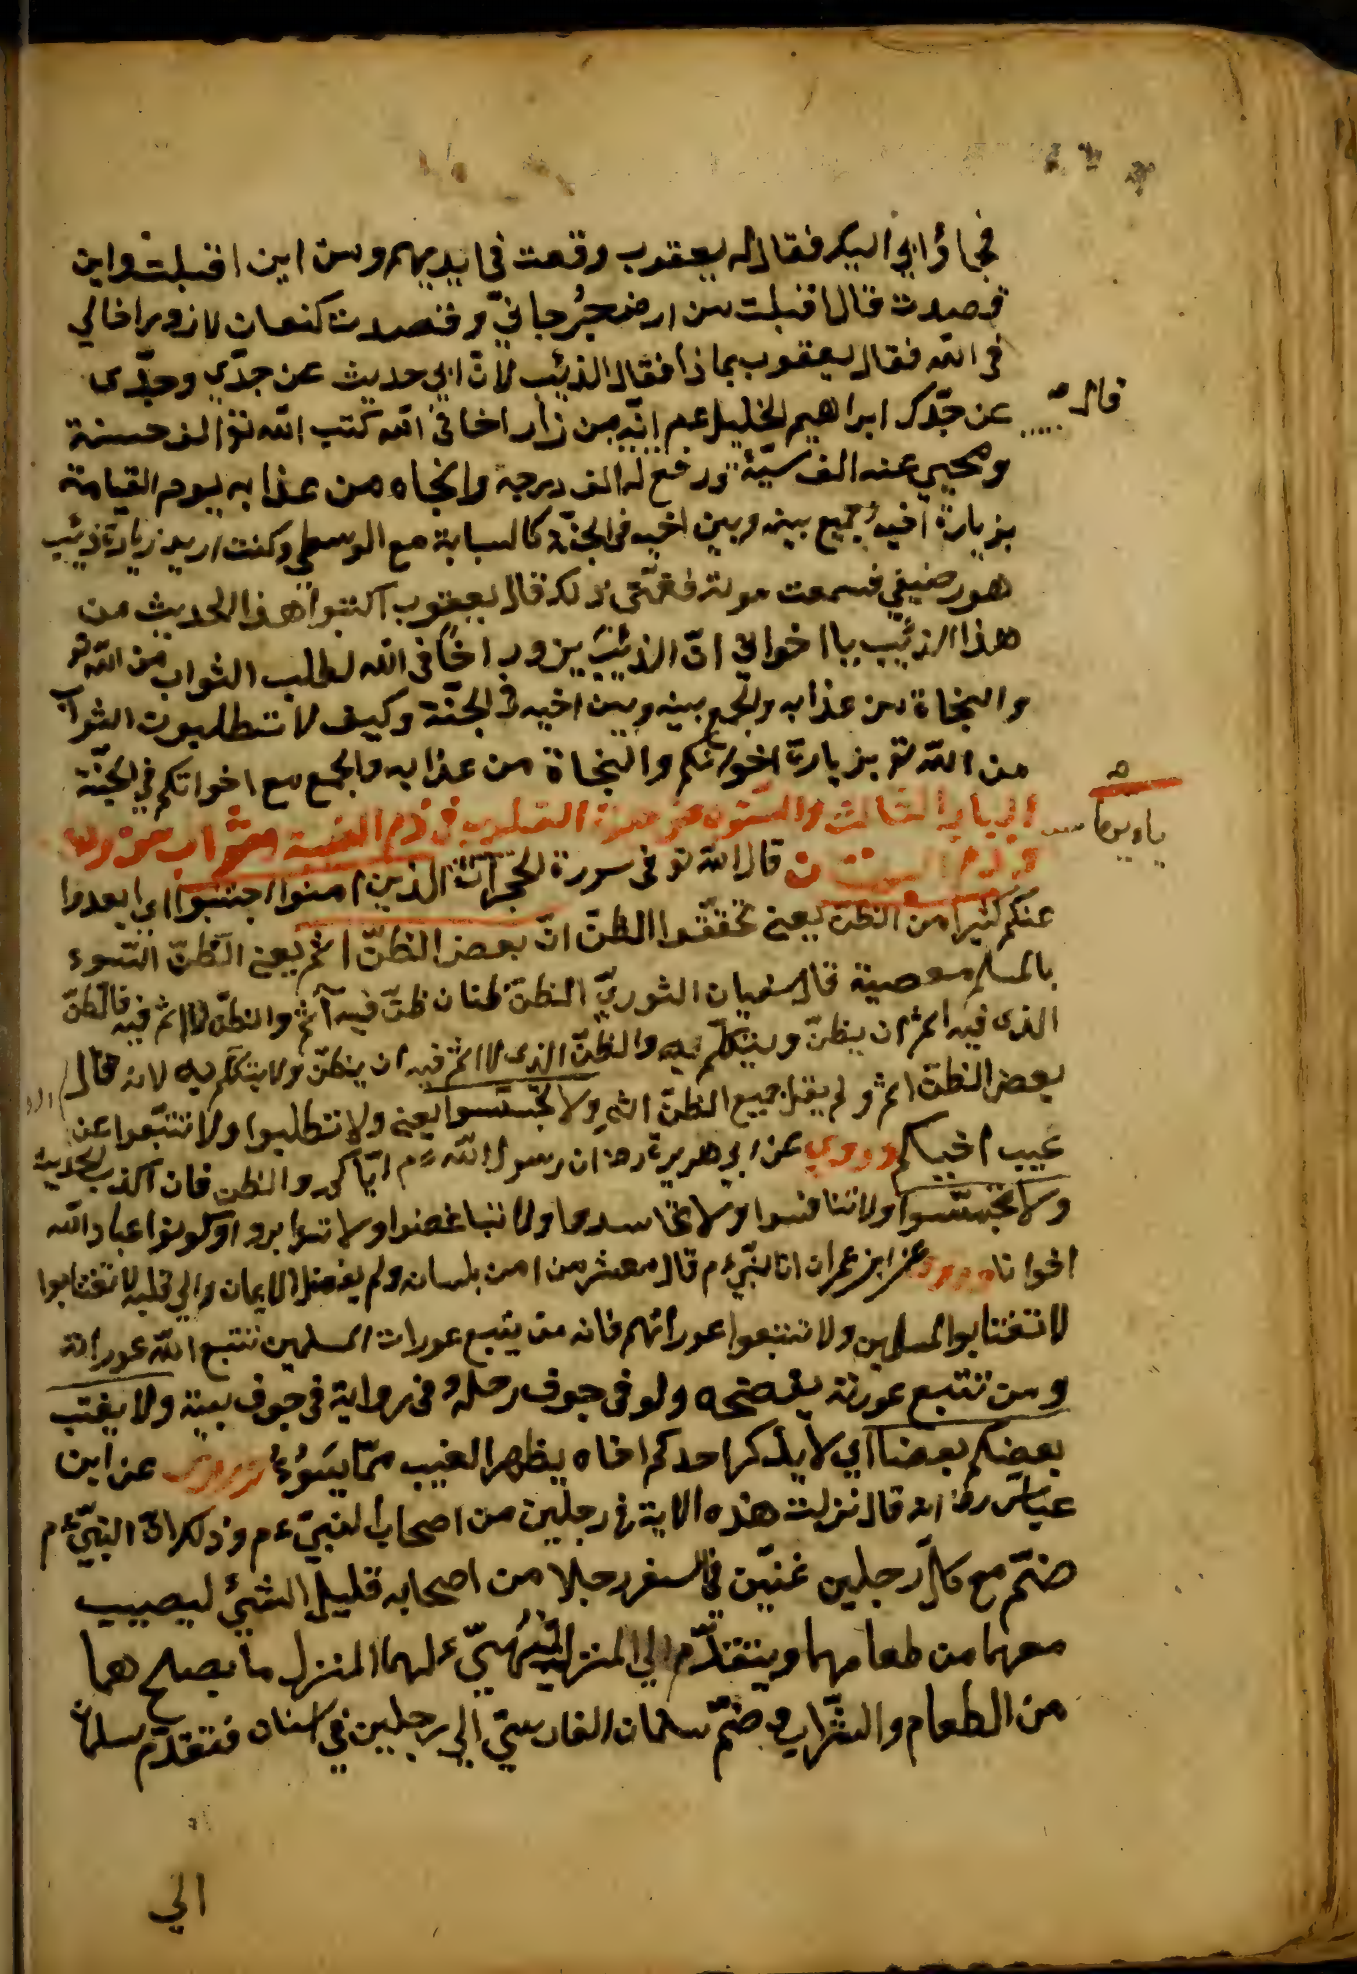 فجاؤابي اليك فقال له يعقوب وقعت في ايديهم ومن اين اقبلت واين
قصدت قال اقبلت من ارض جرجاني وقصدت كنعان لازور اخا لي
في الله فقال يعقوب بماذا فقال الذئب لان ابي حديث عن جدي وجدي
عن جدك ابراهيم الخليل عم انه من زار اخا في الله كتب الله تع الف حسنة
قال
ومحيي عنه الف سيئة ورفع له الف درجة وانجاه من عذابه يوم القيامة
بزيارة اخيه وجميع بينه وبين اخيه في الجنة كالسبابة مع الوسطي وكنت اريد زيارة ذئب
هو رضيعي فسمعت موته فغمني ذلك قال يعقوب اكتبوا هذا الحديث من
هذا الذئب يا اخواني ان الذئب يزور اخا في الله لطلب الثواب من الله تع
والنجاة من عذابه والجمع بينه وبين اخيه في الجنة وكيف لا تطلبون الثواب
من الله تع بزيارة اخوانكم والنجاة من عذابه والجمع مع اخوانكم في الجنة
الباب الثالث والستون من القلوب في ذم الغيبة
قال الله تع في سورة الحجرات الذين امنوا اجتنبوا اي ابعدوا
عنكم كثيرا من الظن يعني تحققوا الظن ان بعض الظن اثم يعني الظن السوء
بالمسلم معصية قال سفيان الثوري الظن ظنان ظن فيه اثم والظن لا اثم فيه فالظن
الذي فيه اثم ان يظن ويتكلم به والظن الذي لا اثم فيه ان يظن ولا يتكلم به لانه قال
بعض الظن اثم ولم يقل جميع الظن اثم ولا تجسسوا يعني ولا تطلبوا ولا تتبعوا عن
عيب اخيكم وروي عن ابي هريرة رض ان رسول الله ءم اياكم والظن فان اكذب الحديث
ولا تجسسوا ولا تنافسوا ولا تحاسدوا ولا تباغضوا ولا تدابروا وكونوا عباد الله
اخوانا وروي عن ابن عمر ان النبي ءم قال معشر من امن بلسانه ولم يفضل الايمان الي قلبه لا تغتابوا
لا تغتابوا المسلمين ولا تتبعوا عوراتهم فانه من يتبع عورات المسلمين تتبع الله عوراته
ومن تتبع عورته يفضحه ولو في جوف رحله وفي رواية في جوف بيته ولا يغتب
بعضكم بعضا اي لا يذكر احدكم اخاه يظهر الغيب مما يسوء وروي عن ابن
عباس رض انه قال نزلت هذه الاية في رجلين من اصحاب النبي ءم وذلك ان النبي ءم
ضم مع كل رجلين غنيين في السفر رجلا من اصحابه قليل الشئ ليصيب
معهما من طعامهما ويتقدم الي المنزل ليهيئ لهما المنزل ما يصلح هما
من الطعام والشراب وضم سلمان الفارسي الي رجلين في فتقدم سلمان
الي